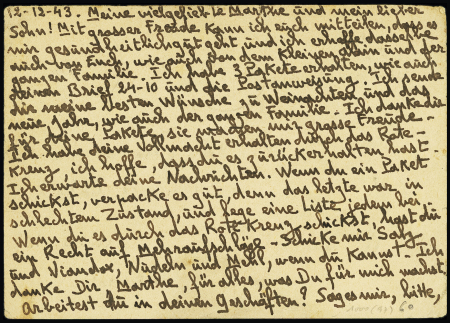 12-12-43. Meine vielgeliebte Marthe und mein lieber
Sohn! Mit grosser Freude kann ich euch mitteilen, dass es
mir gesundheitlich gut geht, und ich erhoffe dasselbe
auch von Euch, wie auch von dem kleinen und der
ganzen Familie. Ich habe 3 Pakete erhalten, wie auch
deinen Brief 24-10 und die Postanweisung. Ich sende
dir meine besten Wünsche zu Weinachten und das
neue Jahr, wie auch der ganzen Familie. Ich danke dir
für deine Pakete, sie machen mir grosse Freude-
Ich habe deine Vollmacht erhalten durch das Rote-
Kreuz, ich hoffe, dass du es zurückerhalten hast-
Ich erwarte deine Nachrichten. Wenn du ein Paket
schickst, verpacke es gut, denn das letzte war in
schlechtem Zustand, und lege eine Liste jedem bei-
Wenn du es durch das Rote Kreuz schickst, hast du
ein Recht auf - Schicke mir Salz
und Viandox, Nudeln und Mehl, wenn du kannst- Ich
danke Dir Marthe, für alles, was Du für mich machst,
arbeitest du in deinen Geschäften? Sage es mir, bitte,